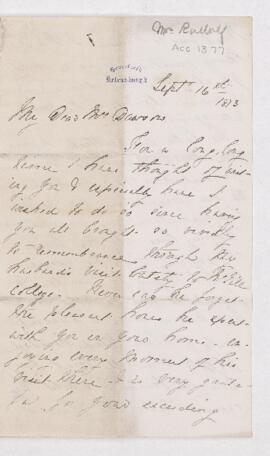 Mrs
Acc 1377
Sept 16th
1873
My Dear Mrs Dawson
For a long, long
time I have thought of writ-
ing you & especially have I
wished to do so since having
you all brought so vividly
to remembrance through my
husband's visit lately to
college. Never can he forget
the pleasant hours he spent
with you in your home - en-
joying every moment of his
visit there. He is very grate-
ful for your exceeding